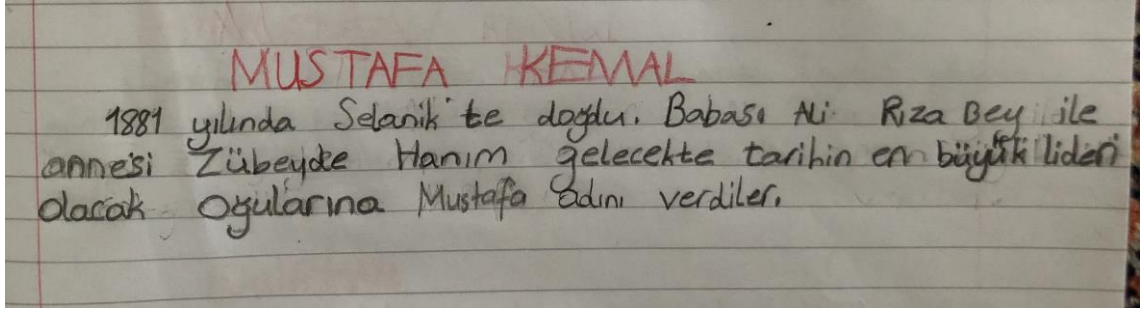 MUSTAFA KEMAL
1881 yılında Selanik'te doğdu. Babası Ali Rıza Bey ile
annesi Zübeyde Hanım gelecekte tarihin en büyük lideri
olacak oğularına Mustafa adını verdiler.